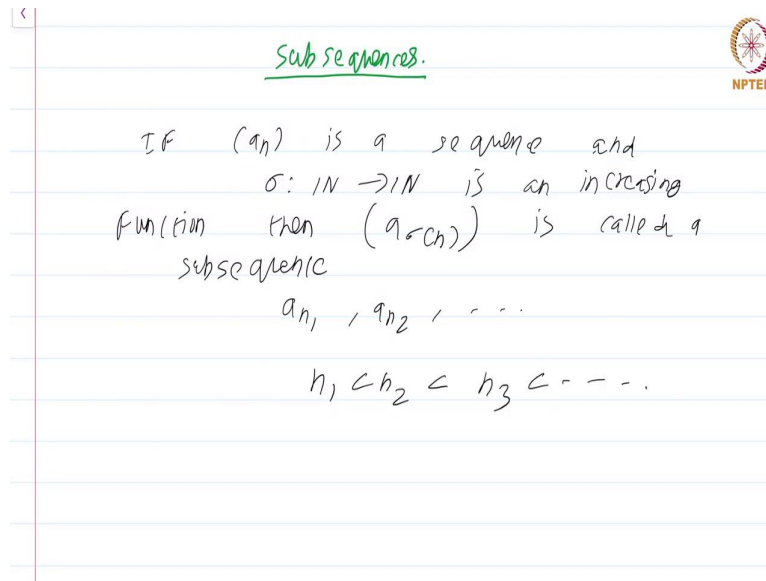 subsequences.
NPTEL
IF (aₙ) is a sequence and
σ: ℕ → ℕ is an increasing
function then (a_σ(n)) is called a
subsequence
aₙ₁, aₙ₂, - - - .
n₁ < n₂ < n₃ < - - - .